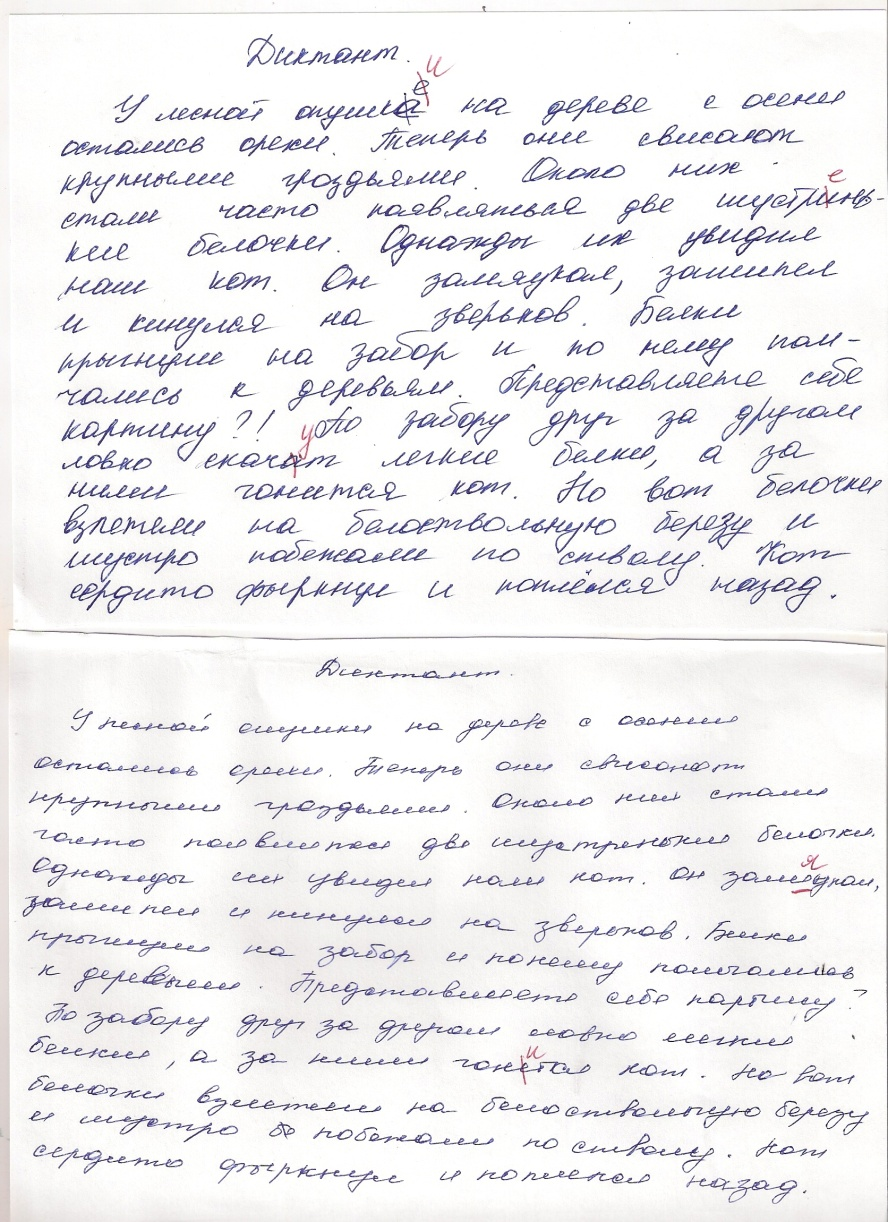 Диктант.
У лесной опушки на дереве с осени
остались орехи. Теперь они свисают
крупными гроздьями. Около них
стали часто появляться две шустринь-
кие белочки. Однажды их увидил
наш кот. Он замяукал, зашипел
и кинулся на зверьков. Белки
прыгнули на забор и по нему пом-
чались к деревьям. Представляете себе
картину?! По забору друг за другом
ловко скачат легкие белки, а за
ними гонится кот. Но вот белочки
взлетели на белоствольную березу и
шустро побежали по стволу. Кот
сердито фыркнул и поплёлся назад.
Диктант.
У лесной опушки на дереве с осени
остались орехи. Теперь они свисают
крупными гроздьями. Около них стали
часто появляться две шустренькие белочки.
Однажды их увидел наш кот. Он замяукал,
зашипел и кинулся на зверьков. Белки
прыгнули на забор и понему помчались
к деревьям. Представляете себе картину?
По забору друг за другом ловко легкие
белки, а за ними гонится кот. Но вот
белочки взлетели на белоствольную березу
и шустро побежали по стволу. Кот
сердито фыркнул и поплелся назад.